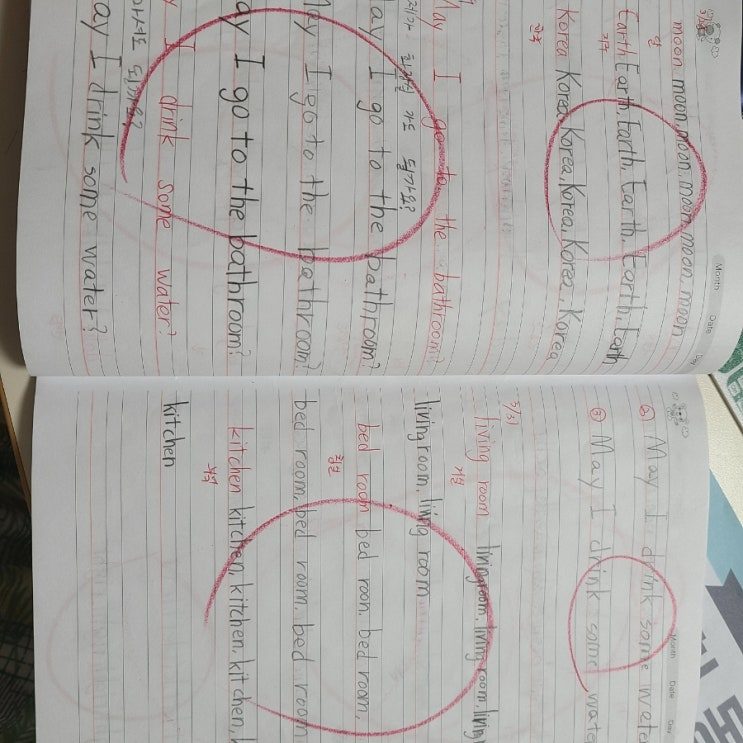 Month Date Day
moon, moon, moon, moon, moon, moon
달
Earth Earth, Earth, Earth, Earth, Earth
지구
Korea Korea, Korea, Korea, Korea, Korea
한국
May I go to the bathroom?
제가 화장실 가도 될까요?
ay I go to the bathroom?
May I go to the bathroom?
ay I go to the bathroom?
y I drink some water?
마셔도 될까요?
ay I drink some water?
Month Date Day
② May I drink some wate
③ May I drink some wate
5/31
living room livingroom, living room, living
거실
livingroom, living room
bed room bed room, bedroom,
침실
bed room, bed room, bed room
kitchen kitchen, kitchen, kitchen, k
부엌
kitchen